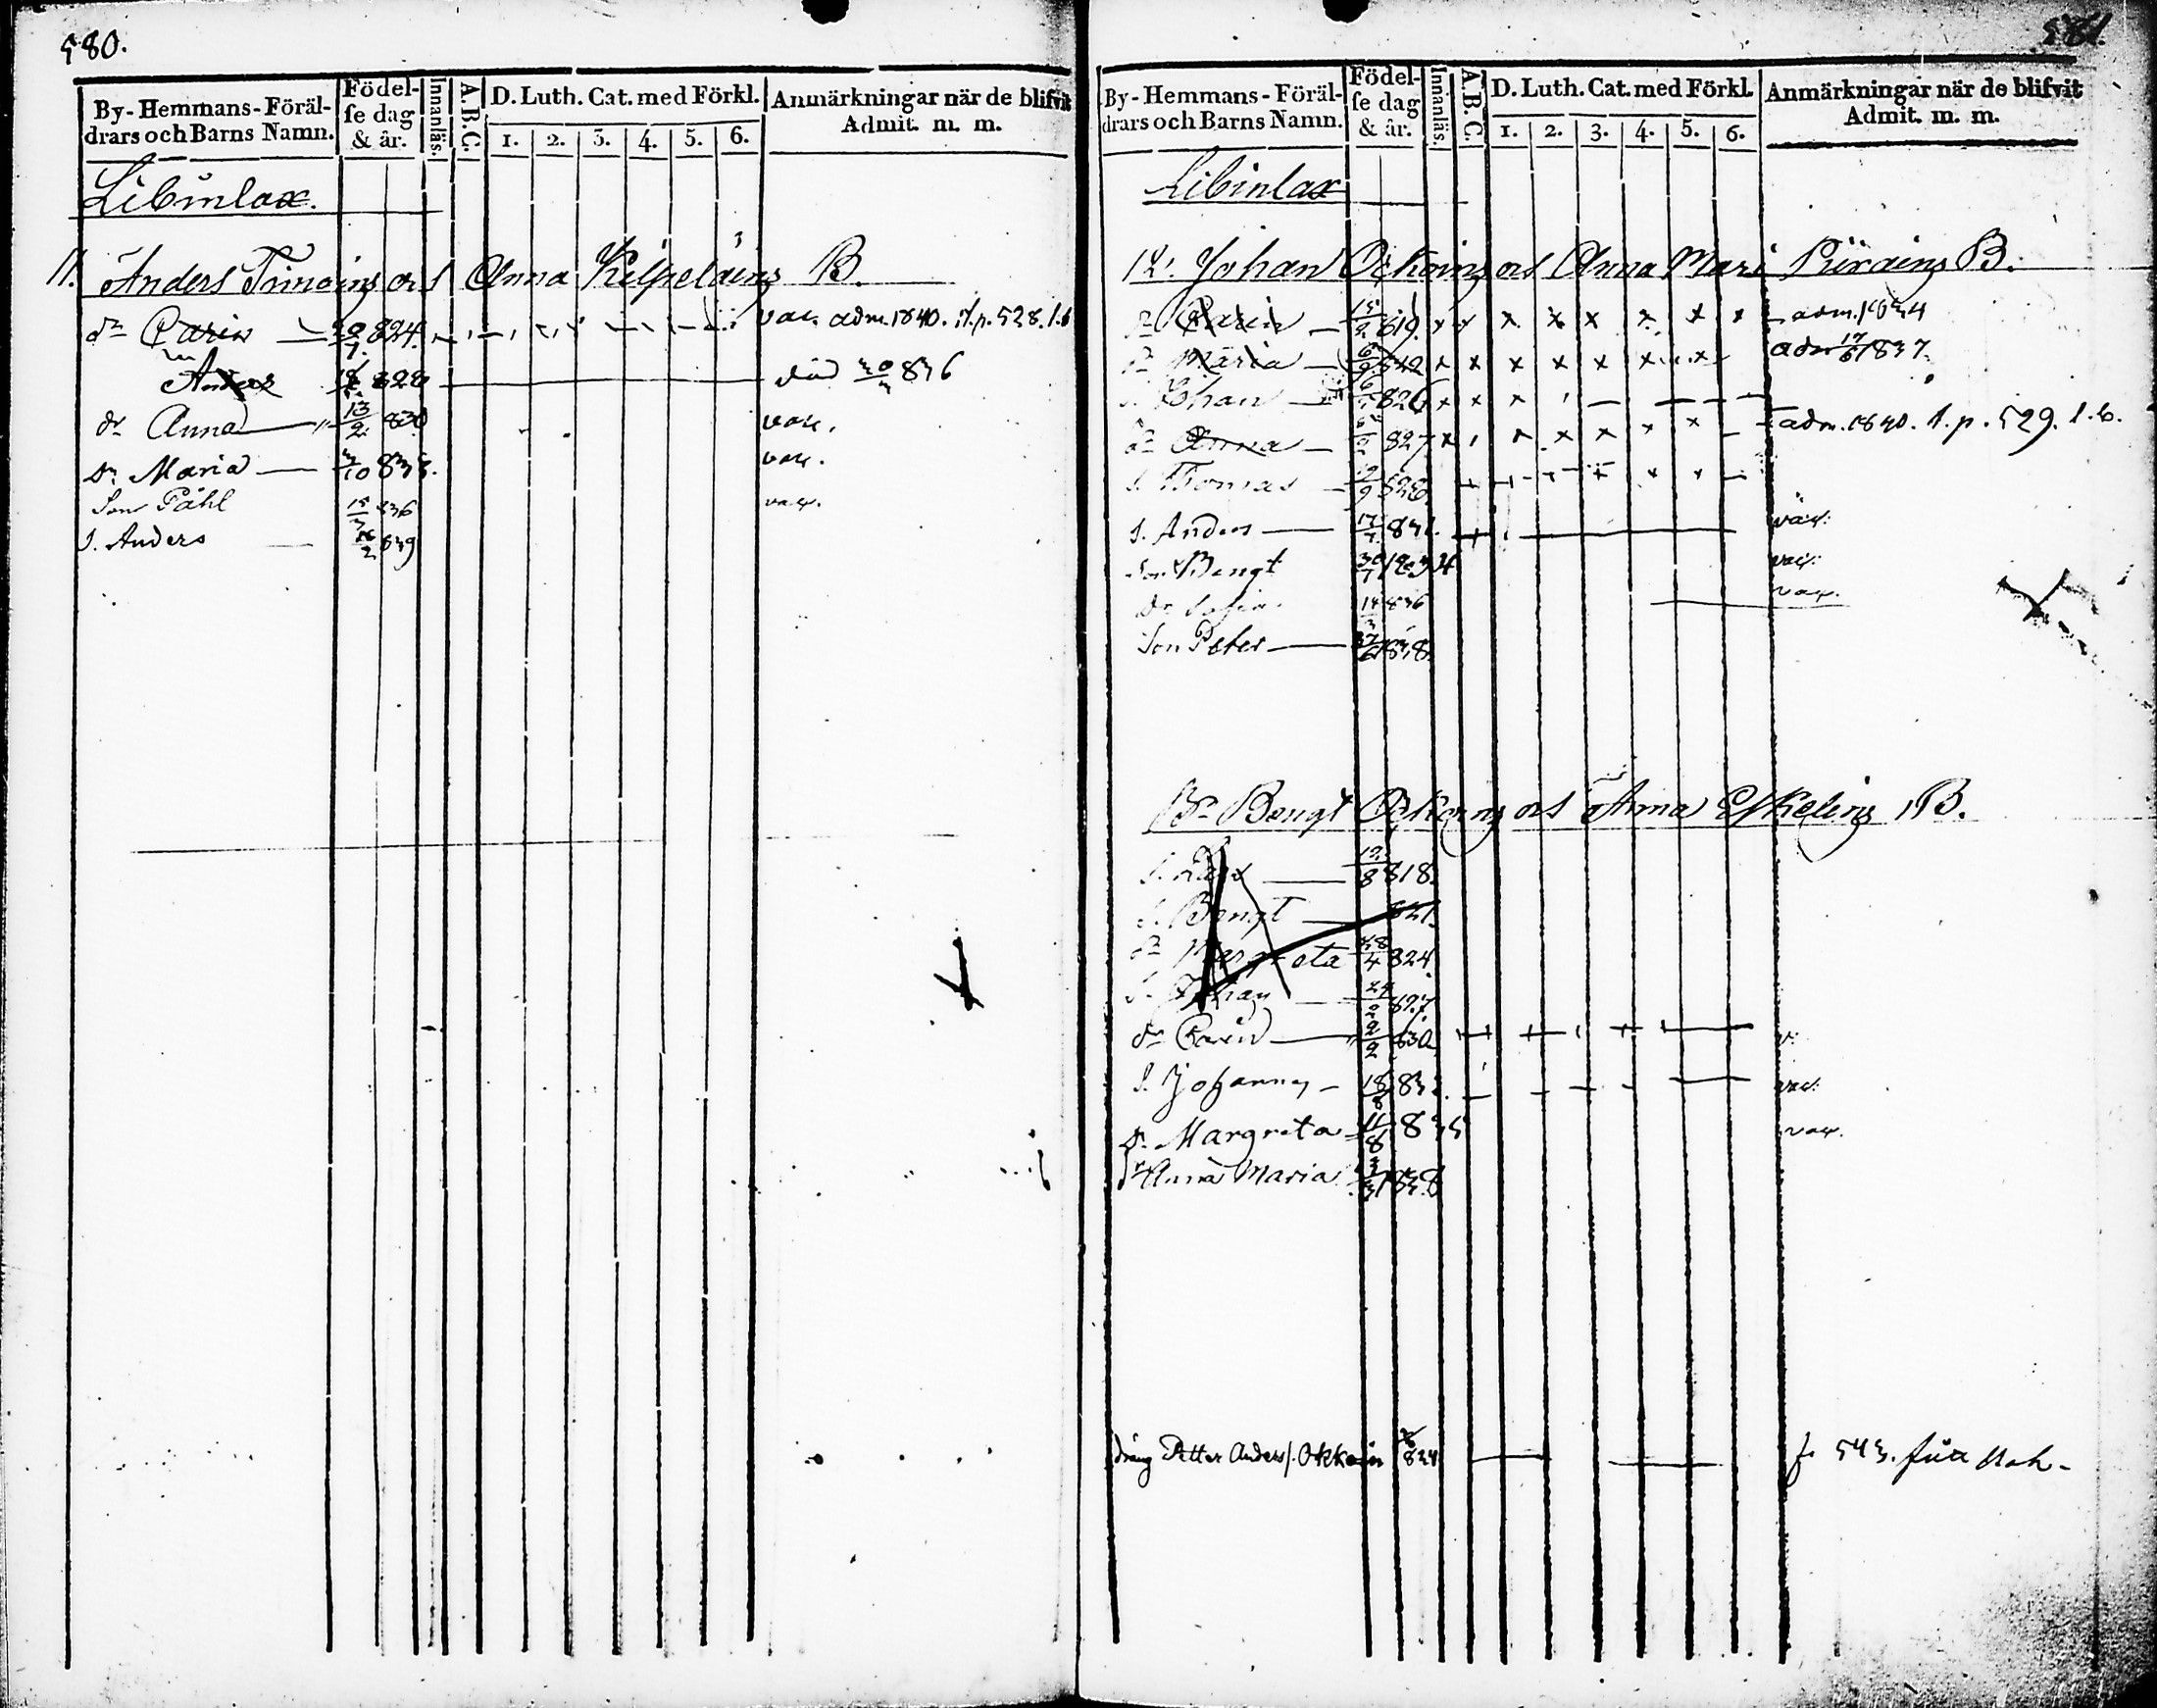 580.
By-Hemmans-Föräl-
drars och Barns Namn.
Födel-
ſe dag
& år.
Innanläs.
A.B.C.
D. Luth. Cat. med Förkl.
1. 2. 3. 4. 5. 6.
Anmärkningar när de blifvit
Admit. m. m.
Libinlax.
11. Anders Timoins os Anna Kilpeläins B.
dr Carin 824. vac. adm. 1840. p. 528. 1.b
Anders 828 död 836
dr Anna 13/2 830 vac.
Dr Maria /10 833. vac.
Son Påhl 15/3 836 vac.
S. Anders 26/2 839
581.
By-Hemmans-Föräl-
drars och Barns Namn.
Födel-
ſe dag
& år.
Innanläs.
A.B.C.
D. Luth. Cat. med Förkl.
1. 2. 3. 4. 5. 6.
Anmärkningar när de blifvit
Admit. m. m.
Libinlax
12. Johan Ockoins os Anna Mari Piirains B.
dr Carin 15/2 819. x x x x x x x x adm. 1834
dr Maria 822 x x x x x x x adm 17/6 1837.
S. Johan 826 x x x
dr Anna 827 x x x x x adm. 1840. p. 529. 1.b.
S. Thomas /9 828 + + + + x x
S. Anders 17/7 831. vac:
Son Bengt 30/7 1834 vac.
Dr Sofia. 14/3 836 vac.
Son Peter 27/6 1838.
Br Bengt Ockoins os Anna Eskelins B.
S. Lars 12/8 818.
S. Bengt 821.
dr Margreta 28/4 824.
S. Johan 24/2 827.
dr Carin 2/2 830. v.
S. Johannes 18/8 832. vac.
Dr. Margreta 11/8 835 vac.
Dr Anna Maria 3/3 1838
dräng Petter Anders s. Okkoin 824 f. 543.